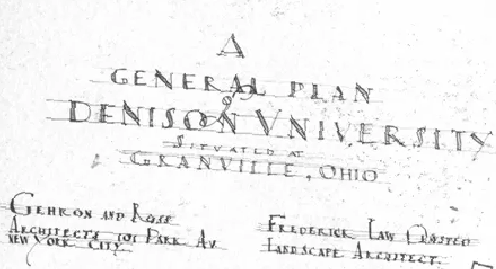 A
GENERAL PLAN
of
DENISON VNIVERSITY
SITVATED AT
GRANVILLE, OHIO
GEHRON AND ROSS
ARCHITECTS 101 PARK AV.
NEW YORK CITY
FREDERICK LAW OLMSTED
LANDSCAPE ARCHITECT.